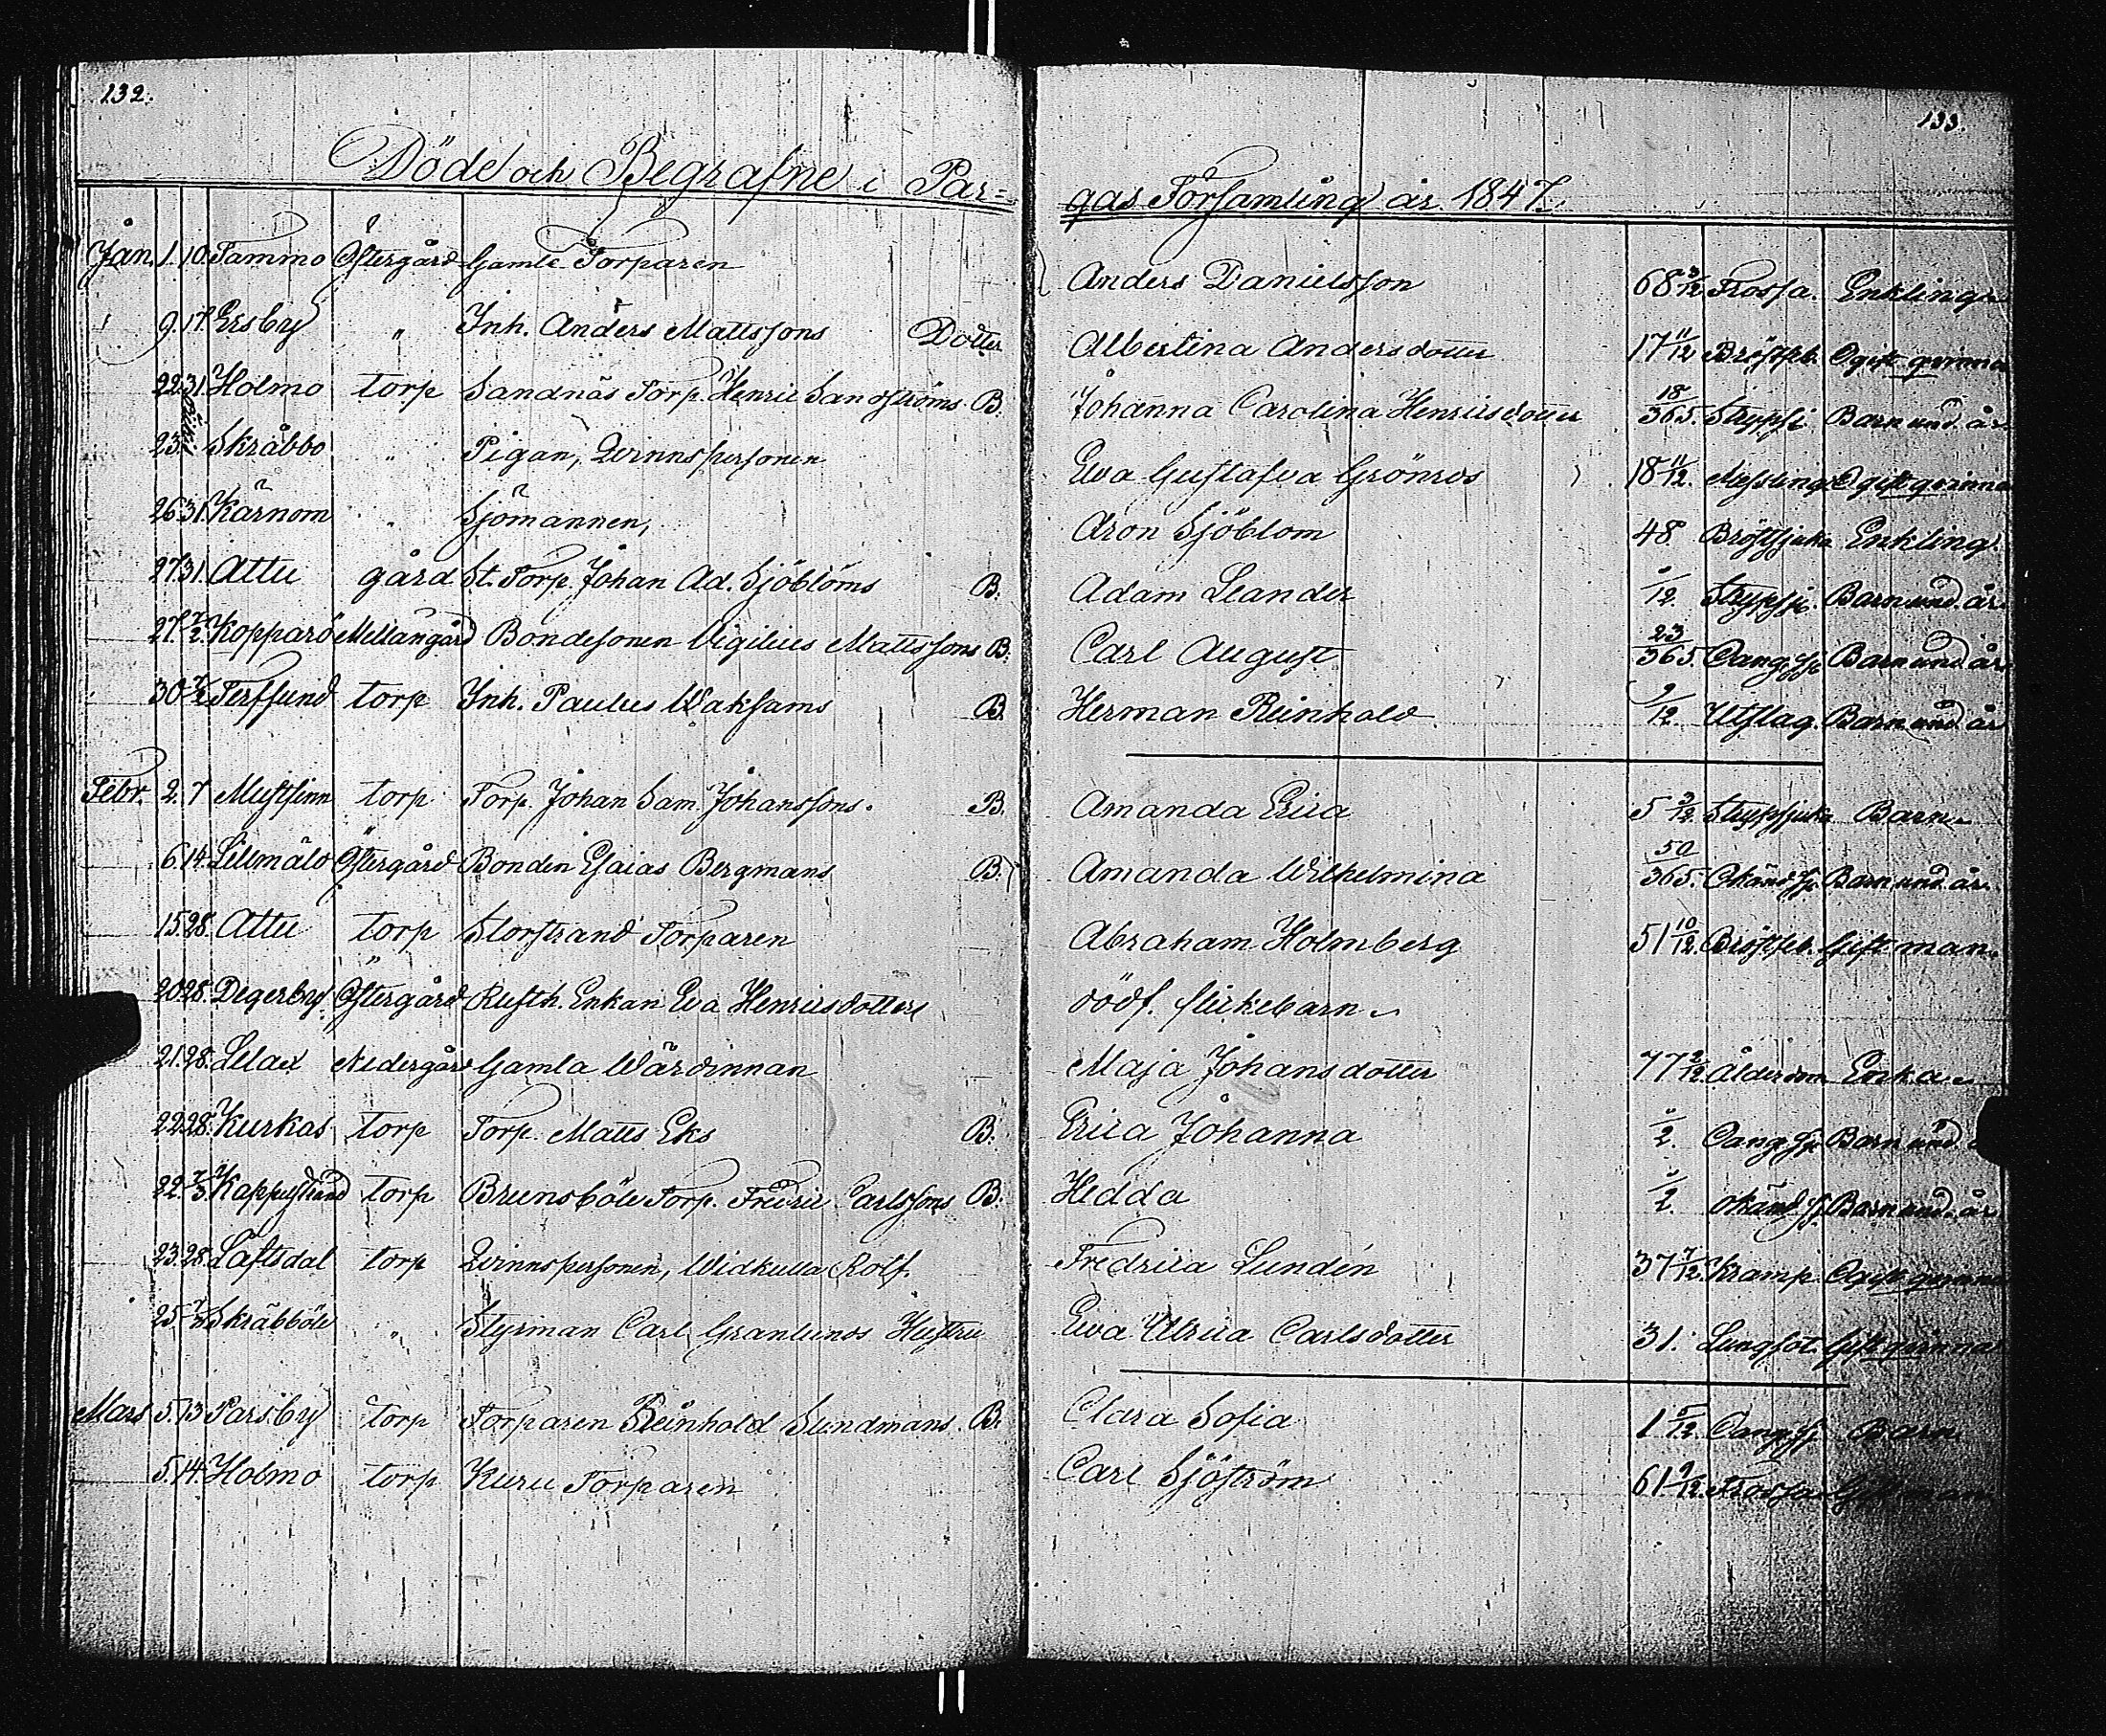 132.
133.
Döde och Begrafne i Par=
gas Församling år 1847.
Jan. 1. 10. Tammo Östergård Gamle Torparen Anders Danielsson 68 3/12 Frossa. Enkling
9. 17. Ersby " Inh. Anders Mattssons Dotter Albertina Andersdotter 17 11/12 Bröstfeb. Ogift qvinna
22. 31. Holmo torp Sandnäs Torp. Henric Sandströms B. Johanna Carolina Henricsdotter 18/365. Strypsj. Barn und. år.
23. Skräbbo " Pigan, Qvinnspersonen Ewa Gustafva Grönroos 18 11/12. Messling Ogift qvinna
26. 31. Kärnom " Sjömannen, Aron Sjöblom 48 Bröstsjuka Enkling.
27. 31. Attu gård St. Torp. Johan Ad. Sjöbloms B. Adam Leander /12. Strypsj. Barn und. år.
27. 7/2. Kopparö Mellangård Bondesonen Vigilius Mattssons B. Carl August 23/365. Oang. sj. Barn und år.
30. 7/2 Terfsund torp Inh. Paulus Waksams B. Herman Reinhold 9/12. Utslag. Barn und år
Febr. 2. 7 Mustfinn torp Torp. Johan Sam. Johanssons. B. Amanda Erica 5 /12 Strypsjuka Barn
6. 14. Lillmälö Östergård Bonden Esaias Bergmans B. Amanda Wilhelmina 50/365. Okänd sj. Barn und. år.
15. 28. Attu torp Storstrand Torparen Abraham Holmberg 51 10/12. Bröstfeb. Gift man.
20. 28. Degerby Östergård Rusth. Enkan Eva Henricsdotters dödf. flickebarn
21. 28. Lilax Nedergård Gamla Wärdinnan Maja Johansdotter 77 2/12. Ålderdom Enka
22. 28. Kurkas torp Torp. Matts Eks B. Erica Johanna /2. Oang. sj. Barn und.
22. 7/3 Kappelstrand torp Brunsböle Torp. Fredric Carlssons B. Hedda /2. okänd sj. Barn und. år
23. 28. Läftsdal torp Qvinnspersonen, Widkulla Rolf. Fredrica Lundén 37 7/12. Kramp. Ogift qvinna
25. Skräbböle " Styrman Carl Granlunds Hustru Ewa Ulrica Carlsdotter 31. Lungsot. Gift qvinna
Mars 5. 13 Parsby torp Torparen Reinhold Sundmans. B. Clara Sofia 1 /12. Oang. sj. Barn
5. 14. Holmo torp Kuru Torparen Carl Sjöström 61 9/12. Frossa Gift man